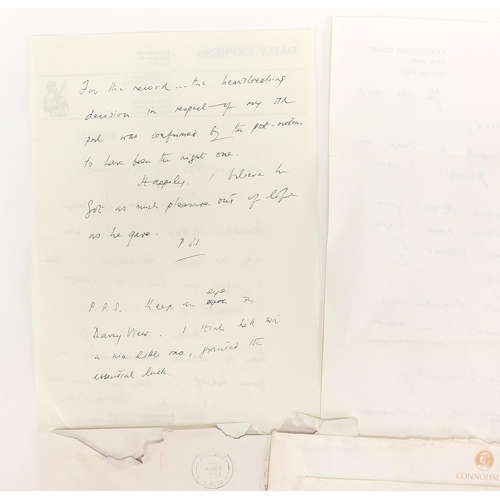 For the record... the heartbreaking
decision in respect of my
was confirmed by the post-mortem
to have been the right one.
Happily. I believe he
got as much pleasure out of life
as he gave.
P.P.S. Keep an eye on
View. I think he'll win
a nice little one, granted the
essential luck.
CONNOISSE